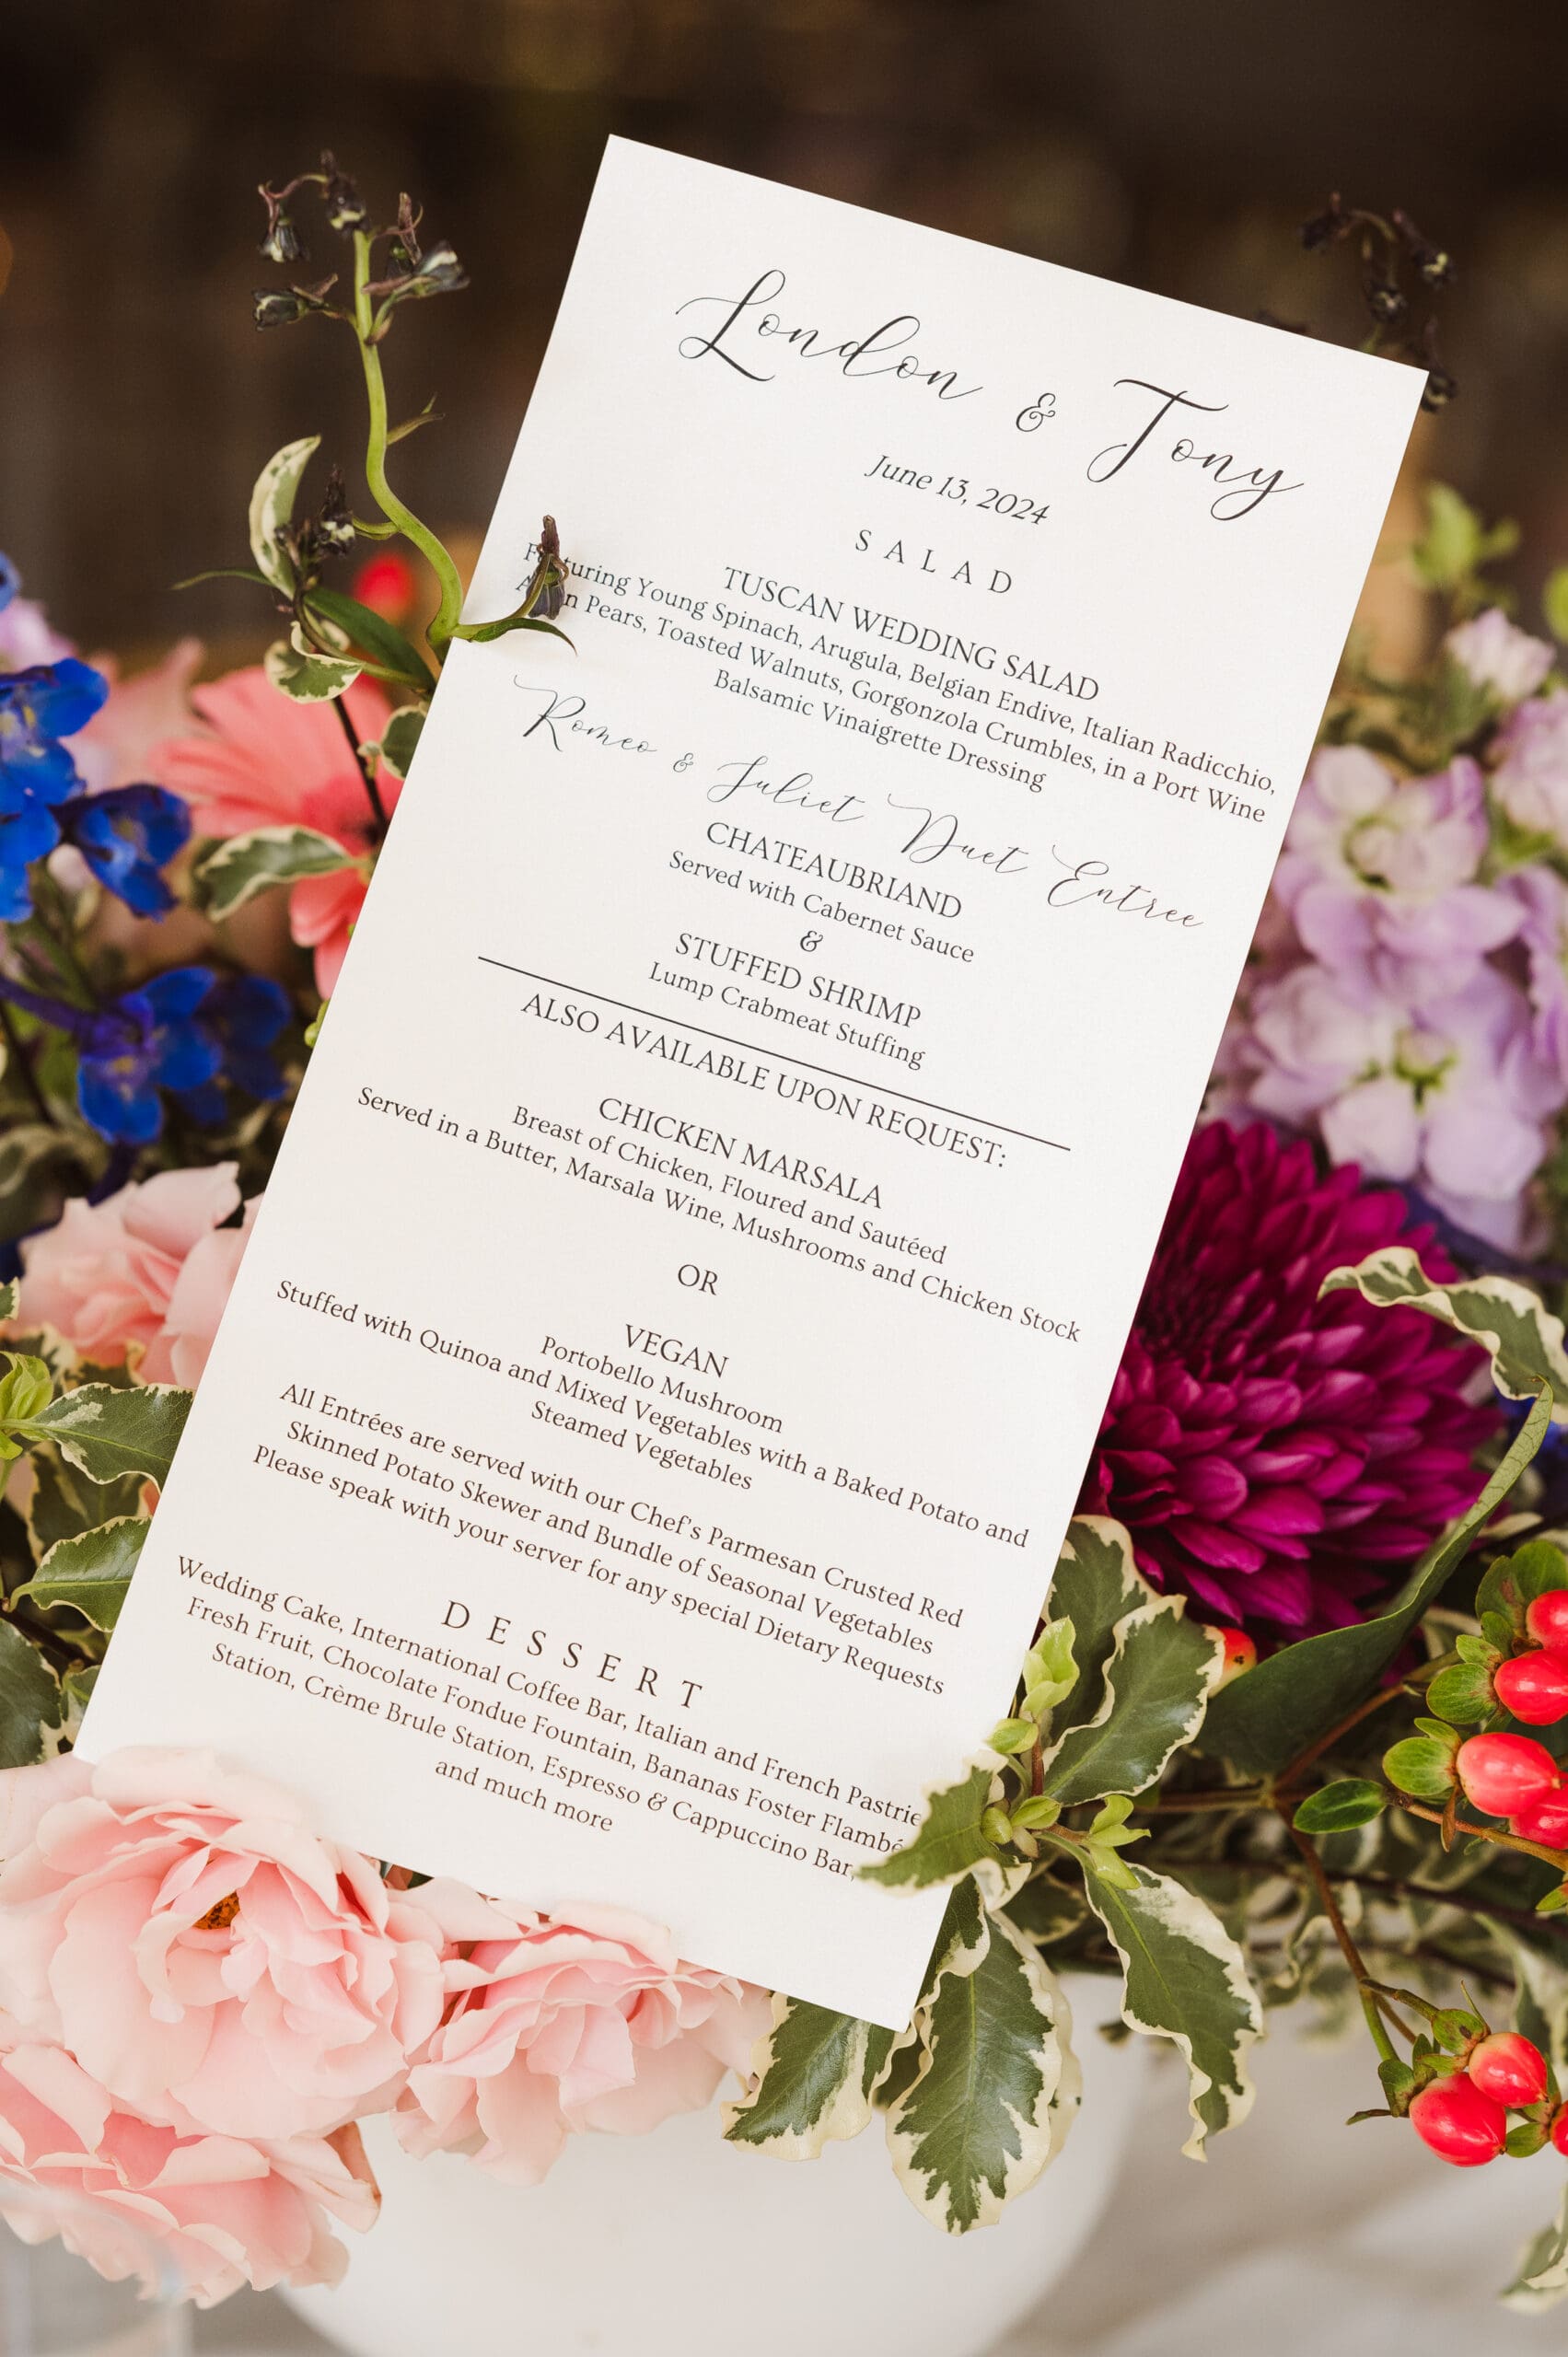 London & Tony
June 13, 2024
SALAD
TUSCAN WEDDING SALAD
Young Spinach, Arugula, Belgian Endive, Italian Radicchio,
Pears, Toasted Walnuts, Gorgonzola Crumbles, in a Port Wine
Balsamic Vinaigrette Dressing
Romeo & Juliet Duet Entree
CHATEAUBRIAND
Served with Cabernet Sauce
&
STUFFED SHRIMP
Lump Crabmeat Stuffing
ALSO AVAILABLE UPON REQUEST:
CHICKEN MARSALA
Breast of Chicken, Floured and Sautéed
Served in a Butter, Marsala Wine, Mushrooms and Chicken Stock
OR
VEGAN
Portobello Mushroom
Stuffed with Quinoa and Mixed Vegetables with a Baked Potato and
Steamed Vegetables
All Entrées are served with our Chef's Parmesan Crusted Red
Skinned Potato Skewer and Bundle of Seasonal Vegetables
Please speak with your server for any special Dietary Requests
DESSERT
Wedding Cake, International Coffee Bar, Italian and French Pastrie
Fresh Fruit, Chocolate Fondue Fountain, Bananas Foster Flambé
Station, Crème Brule Station, Espresso & Cappuccino Bar,
and much more